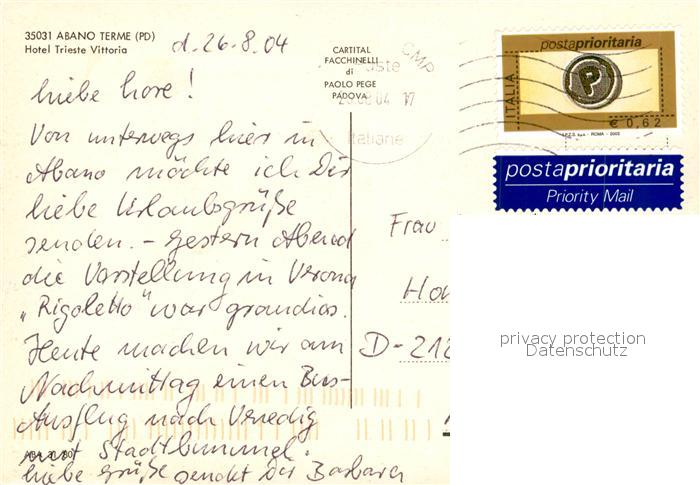 35031 ABANO TERME (PD)
Hotel Trieste Vittoria
d. 26.8.04
liebe Lore!
Von unterwegs hier in
Abano möchte ich Dir
liebe Urlaubsgrüße
senden. – Gestern Abend
die Vorstellung in Verona
„Rigoletto" war grandios.
Heute machen wir am
Nachmittag einen Bus-
Ausflug nach Venedig
mit Stadtbummel.
liebe Grüße sendet Dir Barbara
CARTITAL
FACCHINELLI
di
PAOLO PEGE
PADOVA
CMP
Poste
26.08.04 17
Italiane
postaprioritaria
ITALIA
P
€ 0,62
I.P.Z.S. S.p.A. - ROMA - 2002
postaprioritaria
Priority Mail
Frau
D-212
privacy protection
Datenschutz